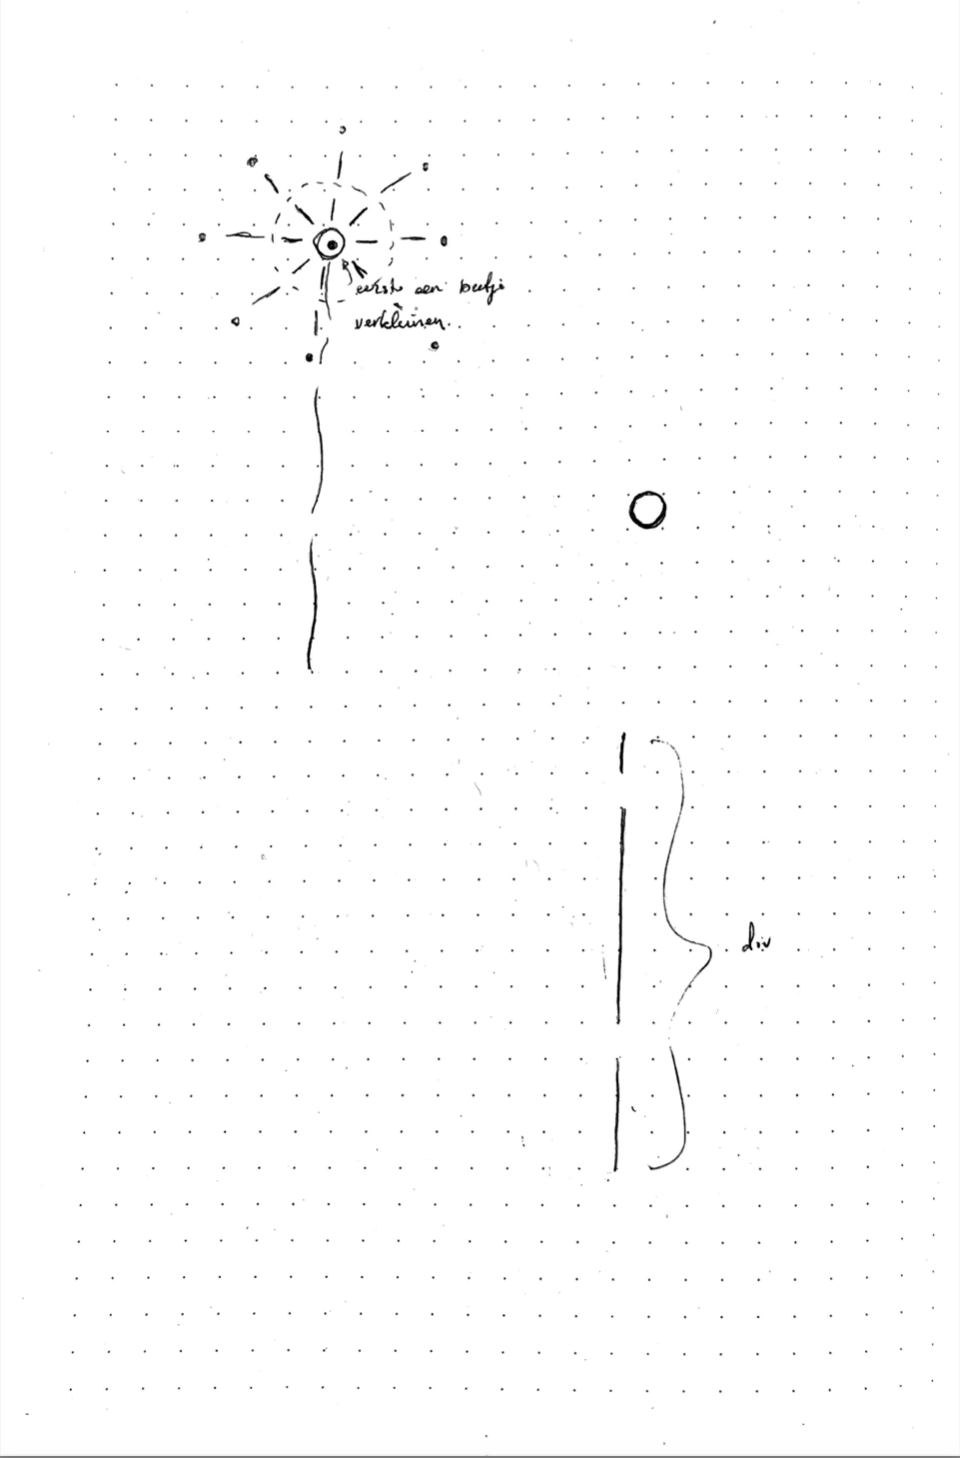 eerst een beetje
verkleinen.
div